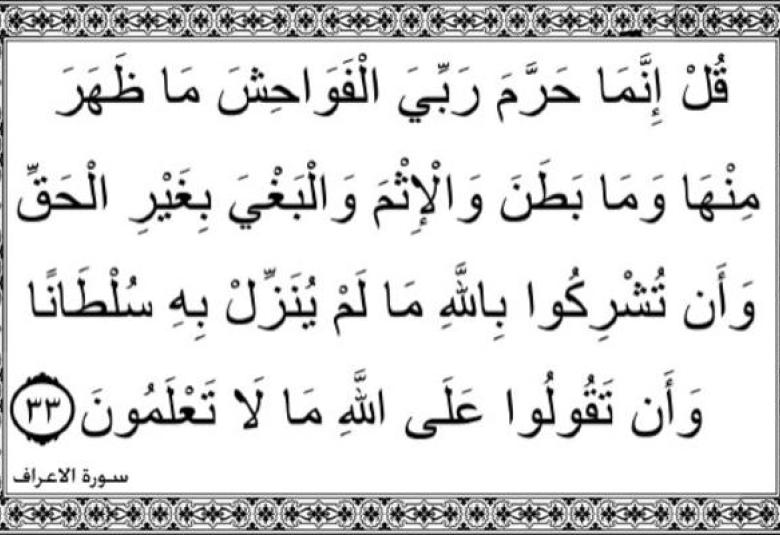 قُلْ إِنَّمَا حَرَّمَ رَبِّيَ الْفَوَاحِشَ مَا ظَهَرَ
مِنْهَا وَمَا بَطَنَ وَالْإِثْمَ وَالْبَغْيَ بِغَيْرِ الْحَقِّ
وَأَن تُشْرِكُوا بِاللَّهِ مَا لَمْ يُنَزِّلْ بِهِ سُلْطَانًا
وَأَن تَقُولُوا عَلَى اللَّهِ مَا لَا تَعْلَمُونَ ٣٣
سورة الاعراف